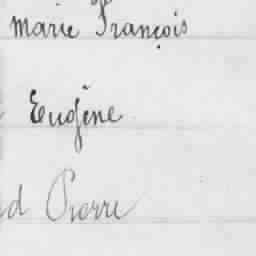 Marie François
Eugène
d Pierre